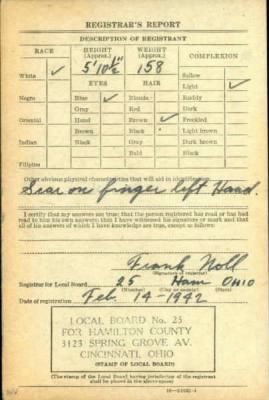 REGISTRAR'S REPORT
DESCRIPTION OF REGISTRANT
RACE HEIGHT (Approx.) WEIGHT (Approx.) COMPLEXION
White ✓ 5'10½" 158 Sallow
EYES HAIR Light ✓
Negro Blue ✓ Blonde Ruddy
Gray Red Dark
Oriental Hazel Brown ✓ Freckled
Brown Black Light brown
Indian Black Gray Dark brown
Bald Black
Filipino
Other obvious physical characteristics that will aid in identification
Scar on finger left Hand.
I certify that my answers are true; that the person registered has read or has had
read to him his own answers; that I have witnessed his signature or mark and that
all of his answers of which I have knowledge are true, except as follows:
Frank Noll
(Signature of registrar)
Registrar for Local Board 25 Ham OHIO
(Number) (City or county) (State)
Date of registration Feb. 14-1942
LOCAL BOARD No. 25
FOR HAMILTON COUNTY
3123 SPRING GROVE AV.
CINCINNATI, OHIO
(STAMP OF LOCAL BOARD)
(The stamp of the Local Board having jurisdiction of the registrant
shall be placed in the above space)